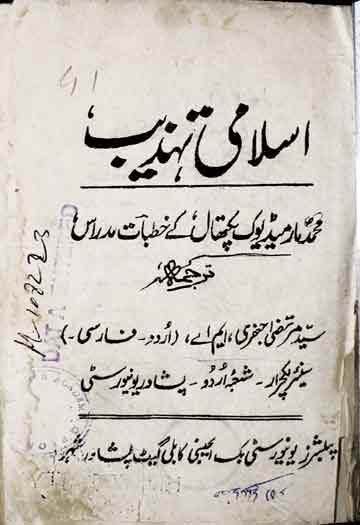 41
اسلامی تہذیب
محمد مارمیڈیوک پکتھال کے خطبات مدراس
ترجمہ
سید مرتضیٰ اجعفری، ایم اے، (اُردو - فارسی -)
سینئر لیکچرار - شعبۂ اُردو - پشاور یونیورسٹی
پبلشرز یونیورسٹی بک ایجنسی کابلی گیٹ پشاور شہر